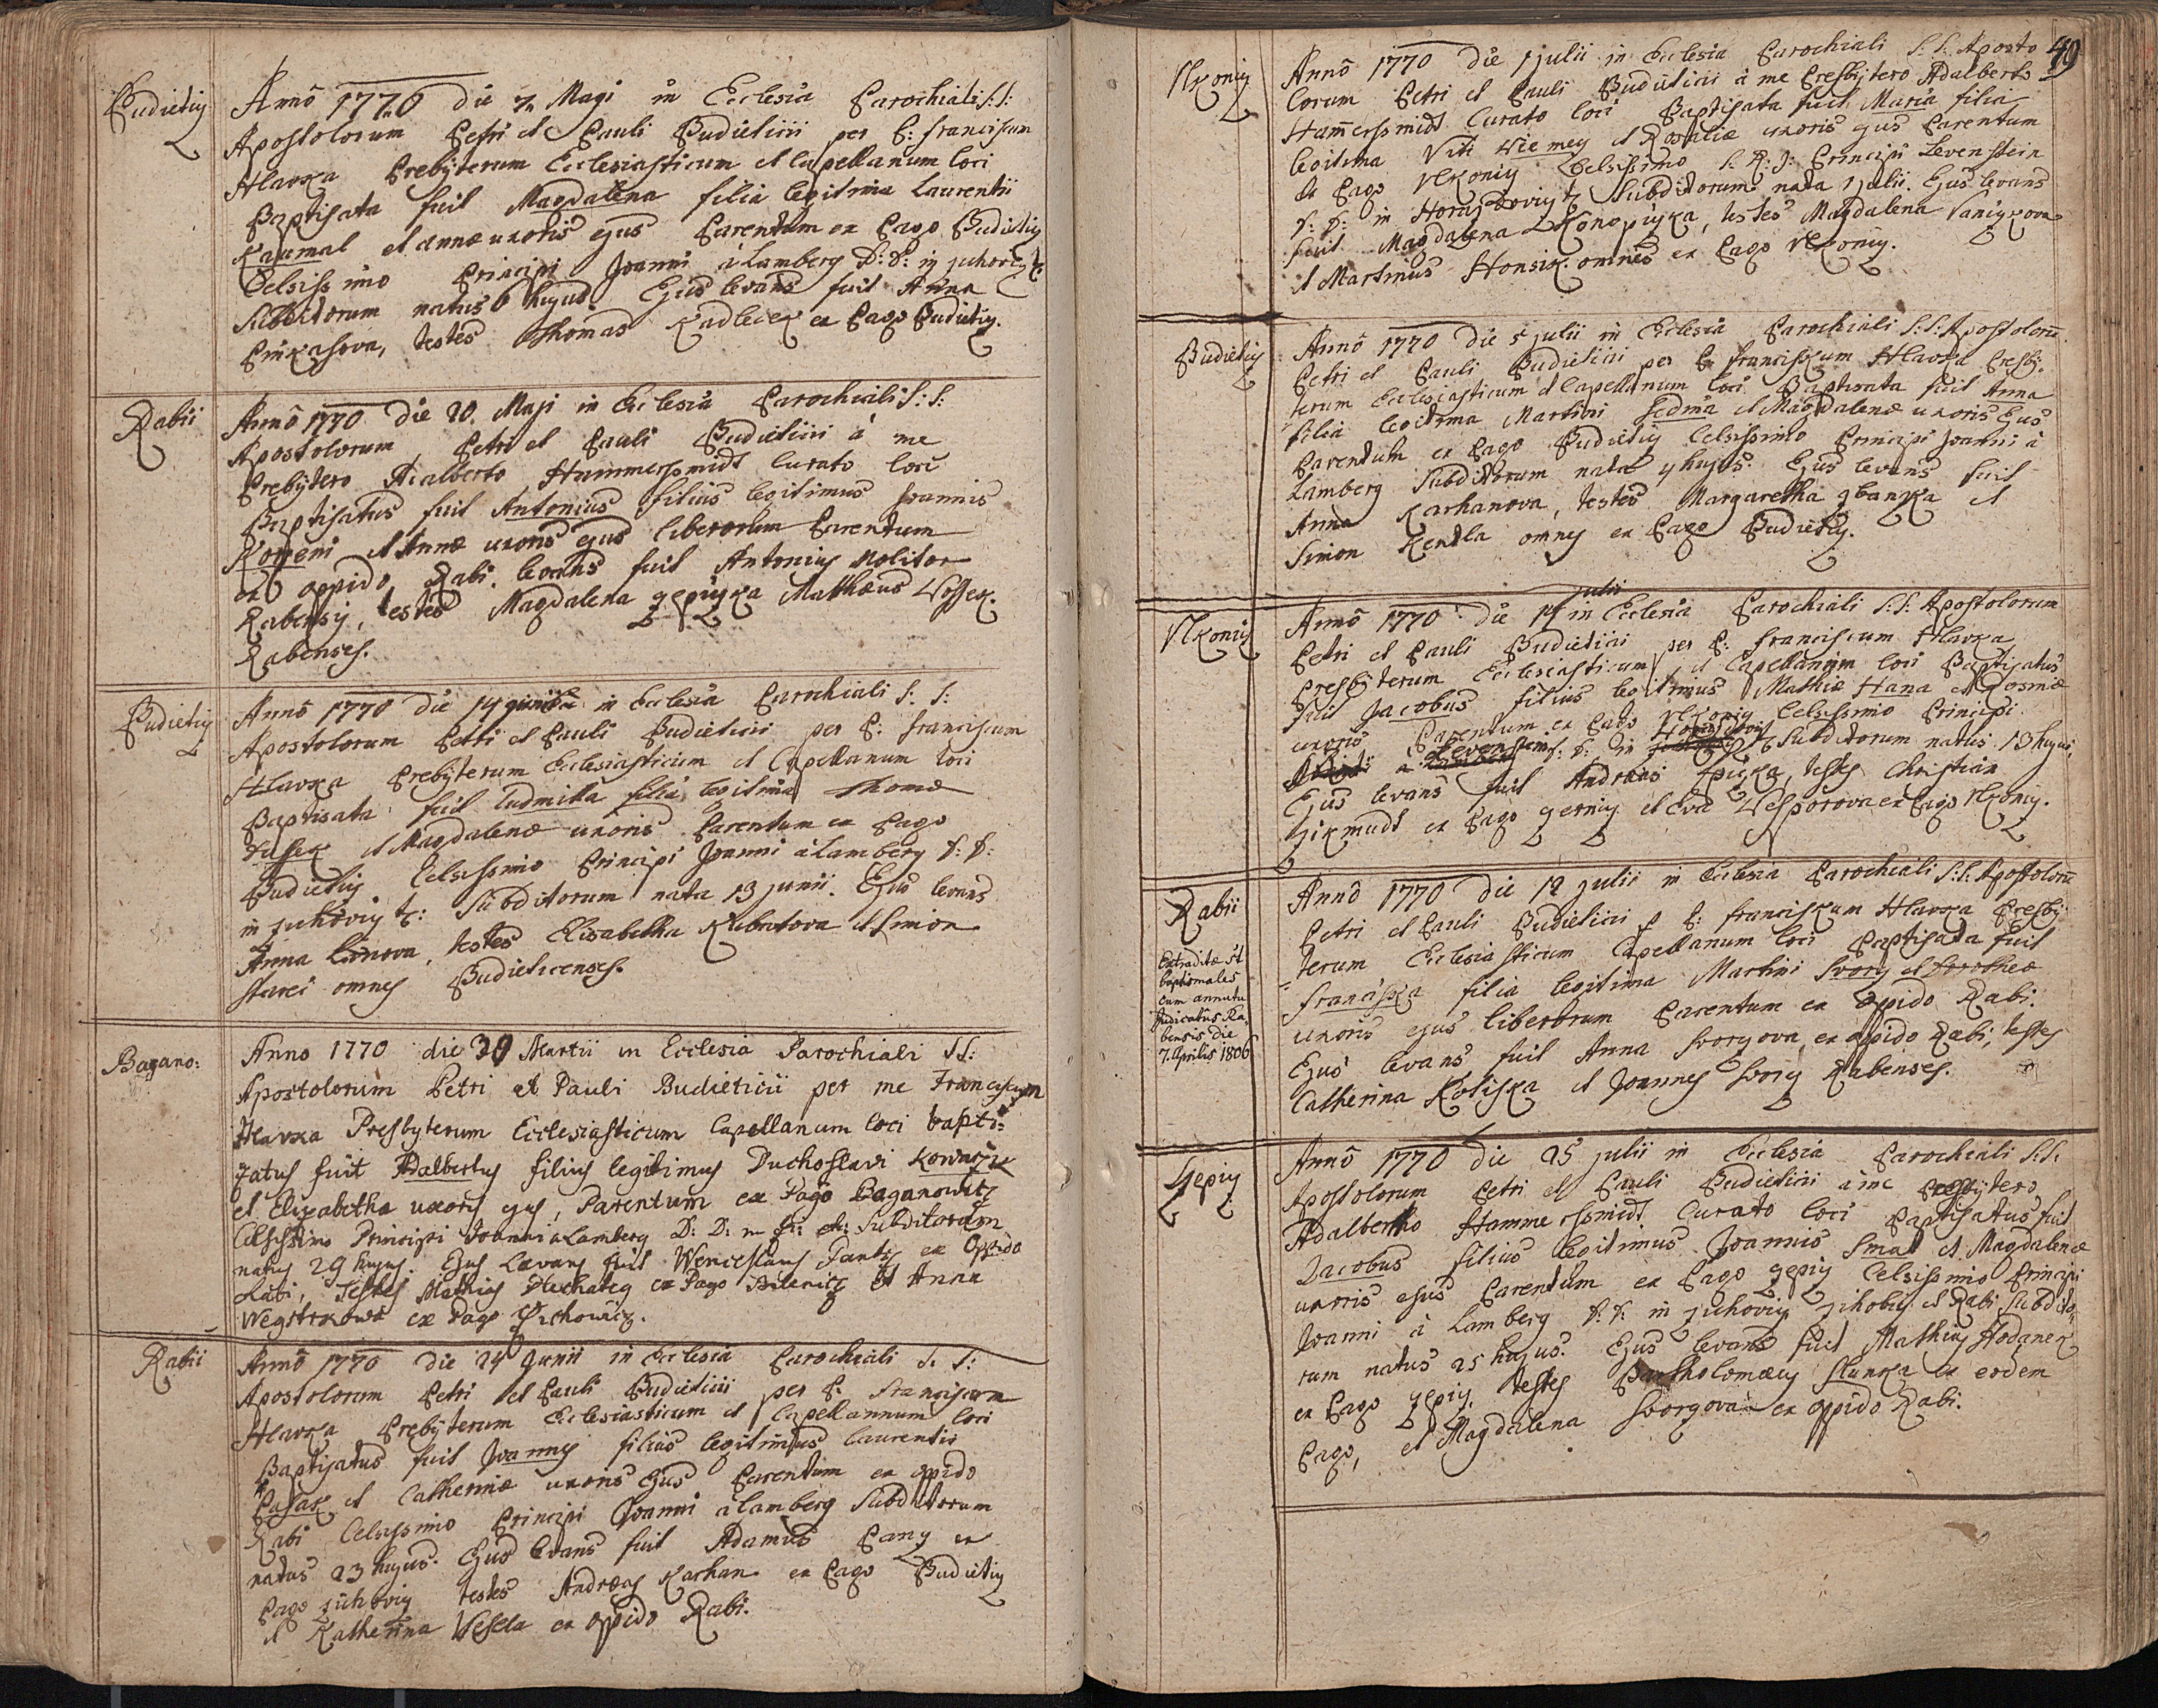 Budietiy
Anno 1770 die 7. Maji in Ecclesia Parochiali S: S:
Apostolorum Petri et Pauli Budieticii per P: Franciscum
Hlavka Prebyterum Ecclesiasticum et Capellanum loci
Baptisata fuit Magdalena filia legitima Laurentii
et Annae uxoris ejus Parentum ex Pago Budietiy
Celsissimo Principi Joanni à Lamberg D: D: in Zuhoviy &:
Subditorum natus 6 hujus. Ejus levans fuit Anna
testes Thomas Kadlecek ex Pago Budietiy.
Rabii
Anno 1770 die 20. Maji in Ecclesia Parochiali S: S:
Apostolorum Petri et Pauli Budieticii à me
Prebytero Adalberto Hammerssmidt Curato loci
Baptisatus fuit Antonius filius legitimus Joannis
et Annae uxoris ejus liberorum Parentum
ex oppido Rabi. levans fuit Antonius Molitor
Rabensij, testes Magdalena Mathaeus
Rabenses.
Budietiy
Anno 1770 die 14 in Ecclesia Parochiali S: S:
Apostolorum Petri et Pauli Budieticii per P: Franciscum
Hlavka Prebyterum Ecclesiasticum et Capellanum loci
Baptisata fuit Ludmilla filia legitima Thomae
et Magdalenae uxoris Parentum ex Pago
Budietiy Celsissimo Principi Joanni à Lamberg D: D:
in Zuhoviy &: Subditorum nata 13 junii. Ejus levans
Anna testes Elisabetha et Simon
omnes Budieticenses.
Baџano:
Anno 1770 die 30 Martii in Ecclesia Parochiali SS:
Apostolorum Petri et Pauli Budieticii per me Franciscum
Hlavka Presbyterum Ecclesiasticum Capellanum loci bapti=
zatus fuit Adalbertus filius legitimus Duchoslavi
et Elizabetha uxoris ejus, Parentum ex Pago
Celsissimo Principi Joanni a Lamberg D: D: in Subditorum
natus 29 hujus. Ejus Levans fuit Wenceslaus ex Oppido
Rabi, Testes Mathias ex Pago et Anna
ex Pago
Rabii
Anno 1770 die 24 Junii in Ecclesia Parochiali S. S:
Apostolorum Petri et Pauli Budieticii per P: Franciscum
Hlavka Prebyterum Ecclesiasticum et Capellannum loci
Baptisatus fuit Joannes filius legitimus Laurentii
et Catherinae uxoris Ejus Parentum ex oppido
Rabi Celsissimo Principi Joanni à Lamberg Subditorum
natus 23 hujus. Ejus levans fuit Adamus ex
Pago Zuhoviy testes Andreas Karhan ex Pago Budietiy
et Katherina Vesela ex oppido Rabi.
49
Vlkoniy
Anno 1770 die 1 julii in Ecclesia Parochiali S: S. Aposto
lorum Petri et Pauli Budieticii à me Presbytero Adalberto
Hammerssmidt Curato loci Baptisata fuit Maria filia
legitima Viti et Rosaliae uxoris ejus Parentum
ex Pago Vlkoniy Celsissimo S. R: J: Principi Levenstein
D: D: in &: Subditorum nata 1 julii. Ejus levans
fuit Magdalena Konopiska, testes Magdalena
et Martinus Honsik omnes ex Pago Vlkoniy.
Budietiy
Anno 1770 die 5 julii in Ecclesia Parochiali S: S: Apostolorū
Petri et Pauli Budieticii per P: Franciskum Hlavka Presbi:
terum Ecclesiasticum et Capellanum loci Baptisata fuit Anna
filia legitima Martini Sedma et Magdalenae uxoris Ejus
Parentum ex Pago Budietiy Celsissimo Principi Joanni à
Lamberg Subditorum nata 4 hujus. Ejus levans fuit
Anna Karhanova, testes Margaretha et
Simon omnes ex Pago Budietiy.
Vlkoniy
julii
Anno 1770 die 14 in Ecclesia Parochiali S: S: Apostolorum
Petri et Pauli Budieticii per P: Franciscum Hlavka
Presbyterum Ecclesiasticum et Capellanum loci Baptisatus
fuit Jacobus filius legitimus Mathiae Hana et
uxoris Parentum ex Pago Vlkoniy Celsissimo Principi
Levenstein D: D: in &: Subditorum natus 13 hujus,
Ejus levans fuit Andreas testes Christian
Zikmudt ex Pago et Eva ex Pago Vlkoniy.
Rabii
Extraditae st
baptismales
cum annutu
Judicatûs Ra,
bensis die
7. Aprilis 1806
Anno 1770 die 12 julii in Ecclesia Parochiali S: S: Apostolorū
Petri et Pauli Budieticii p P: Franciskum Hlavka Presby:
terum Ecclesiasticum Capellanum loci Baptisata fuit
Franciska filia legitima Martini Svory et Dorotheae
uxoris ejus liberorum Parentum ex oppido Rabi.
Ejus levans fuit Anna Svoryova, ex oppido Rabi, testes
Catherina et Joannes Svory Rabenses.
Anno 1770 die 25 julii in Ecclesia Parochiali S: S.
Apostolorum Petri et Pauli Budieticii à me Presbytero
Adalberto Hammerssmidt Curato loci Baptisatus fuit
Jacobus filius legitimus Joannis Smat et Magdalenae
uxoris ejus Parentum ex Pago Celsissimo Principi
Joanni à Lamberg D: D: in Zuhoviy et Rabi Subdito=
rum natus 25 hujus. Ejus levans fuit Mathias Hodanek
ex Pago testes Bartholomaeus ex eodem
Pago, et Magdalena Svoryova ex oppido Rabi.